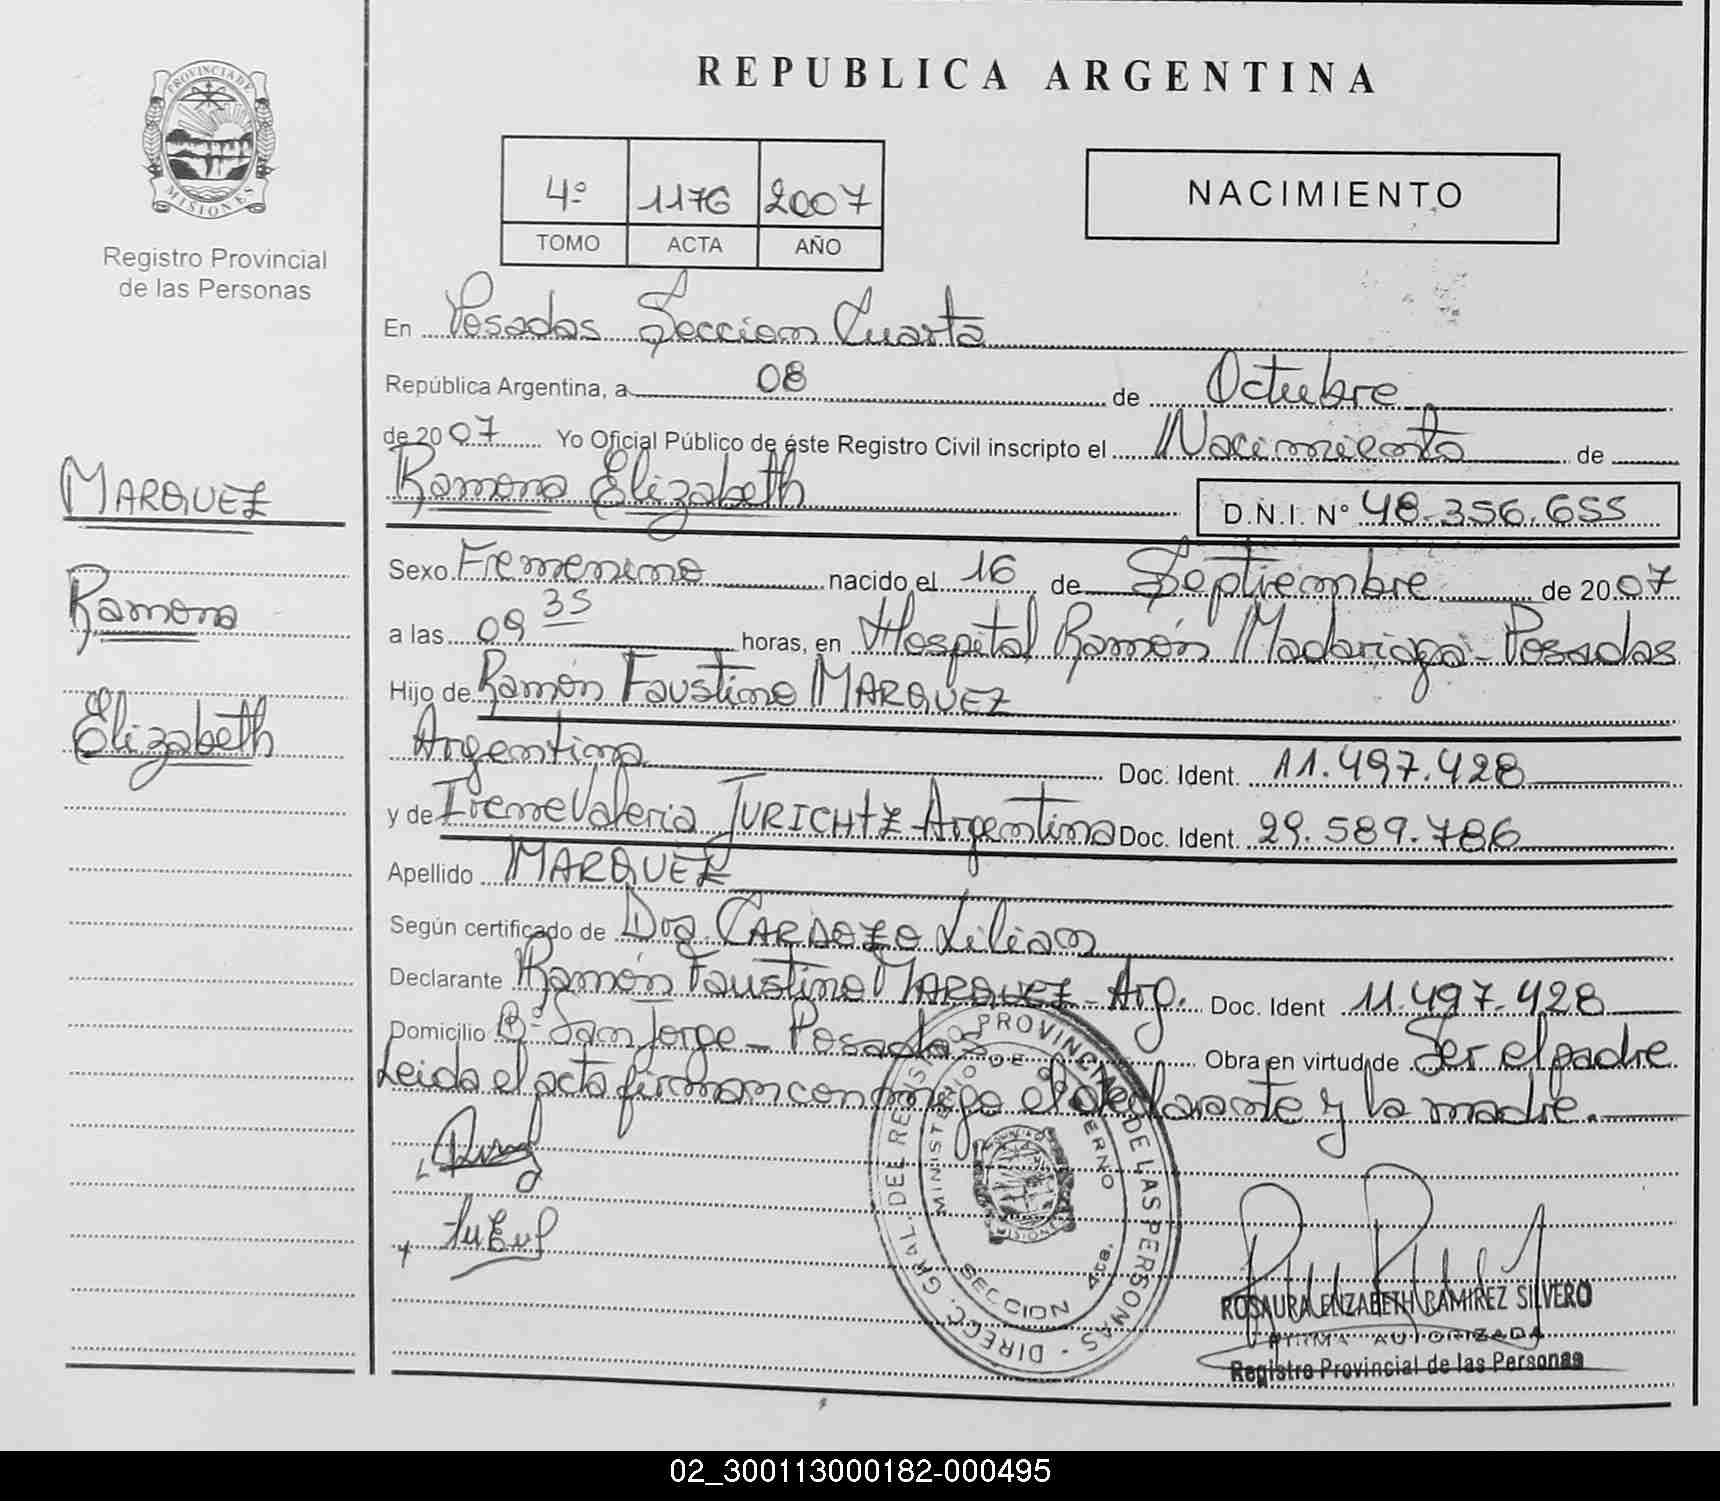 PROVINCIA DE
MISIONES
Registro Provincial
de las Personas
MARQUEZ
Ramona
Elizabeth
REPUBLICA ARGENTINA
4º 1176 2007
TOMO ACTA AÑO
NACIMIENTO
En Posadas Seccion Cuarta
República Argentina, a 08 de Octubre
de 2007 Yo Oficial Público de éste Registro Civil inscripto el Nacimiento de
Ramona Elizabeth D.N.I. Nº 48.356.655
Sexo Femenino nacido el 16 de Septiembre de 2007
a las 09 35 horas, en Hospital Ramón Madariaga - Posadas
Hijo de Ramón Faustino MARQUEZ
Argentina Doc. Ident. 11.497.428
y de Irene Valeria JURICHTZ Argentina Doc. Ident. 29.589.786
Apellido MARQUEZ
Según certificado de Dra. CARDOZO Lilian
Declarante Ramón Faustino MARQUEZ - Arg. Doc. Ident 11.497.428
Domicilio Bº San Jorge - Posadas Obra en virtud de Ser el padre
Leida el acta firman conmigo el declarante y la madre.
DIRECC. GRAL. DEL REGISTRO PROVINCIAL DE LAS PERSONAS
MINISTERIO DE GOBIERNO
SECCION 4ta.
ROSAURA ELIZABETH RAMIREZ SILVERO
FIRMA AUTORIZADA
Registro Provincial de las Personas
02_300113000182-000495